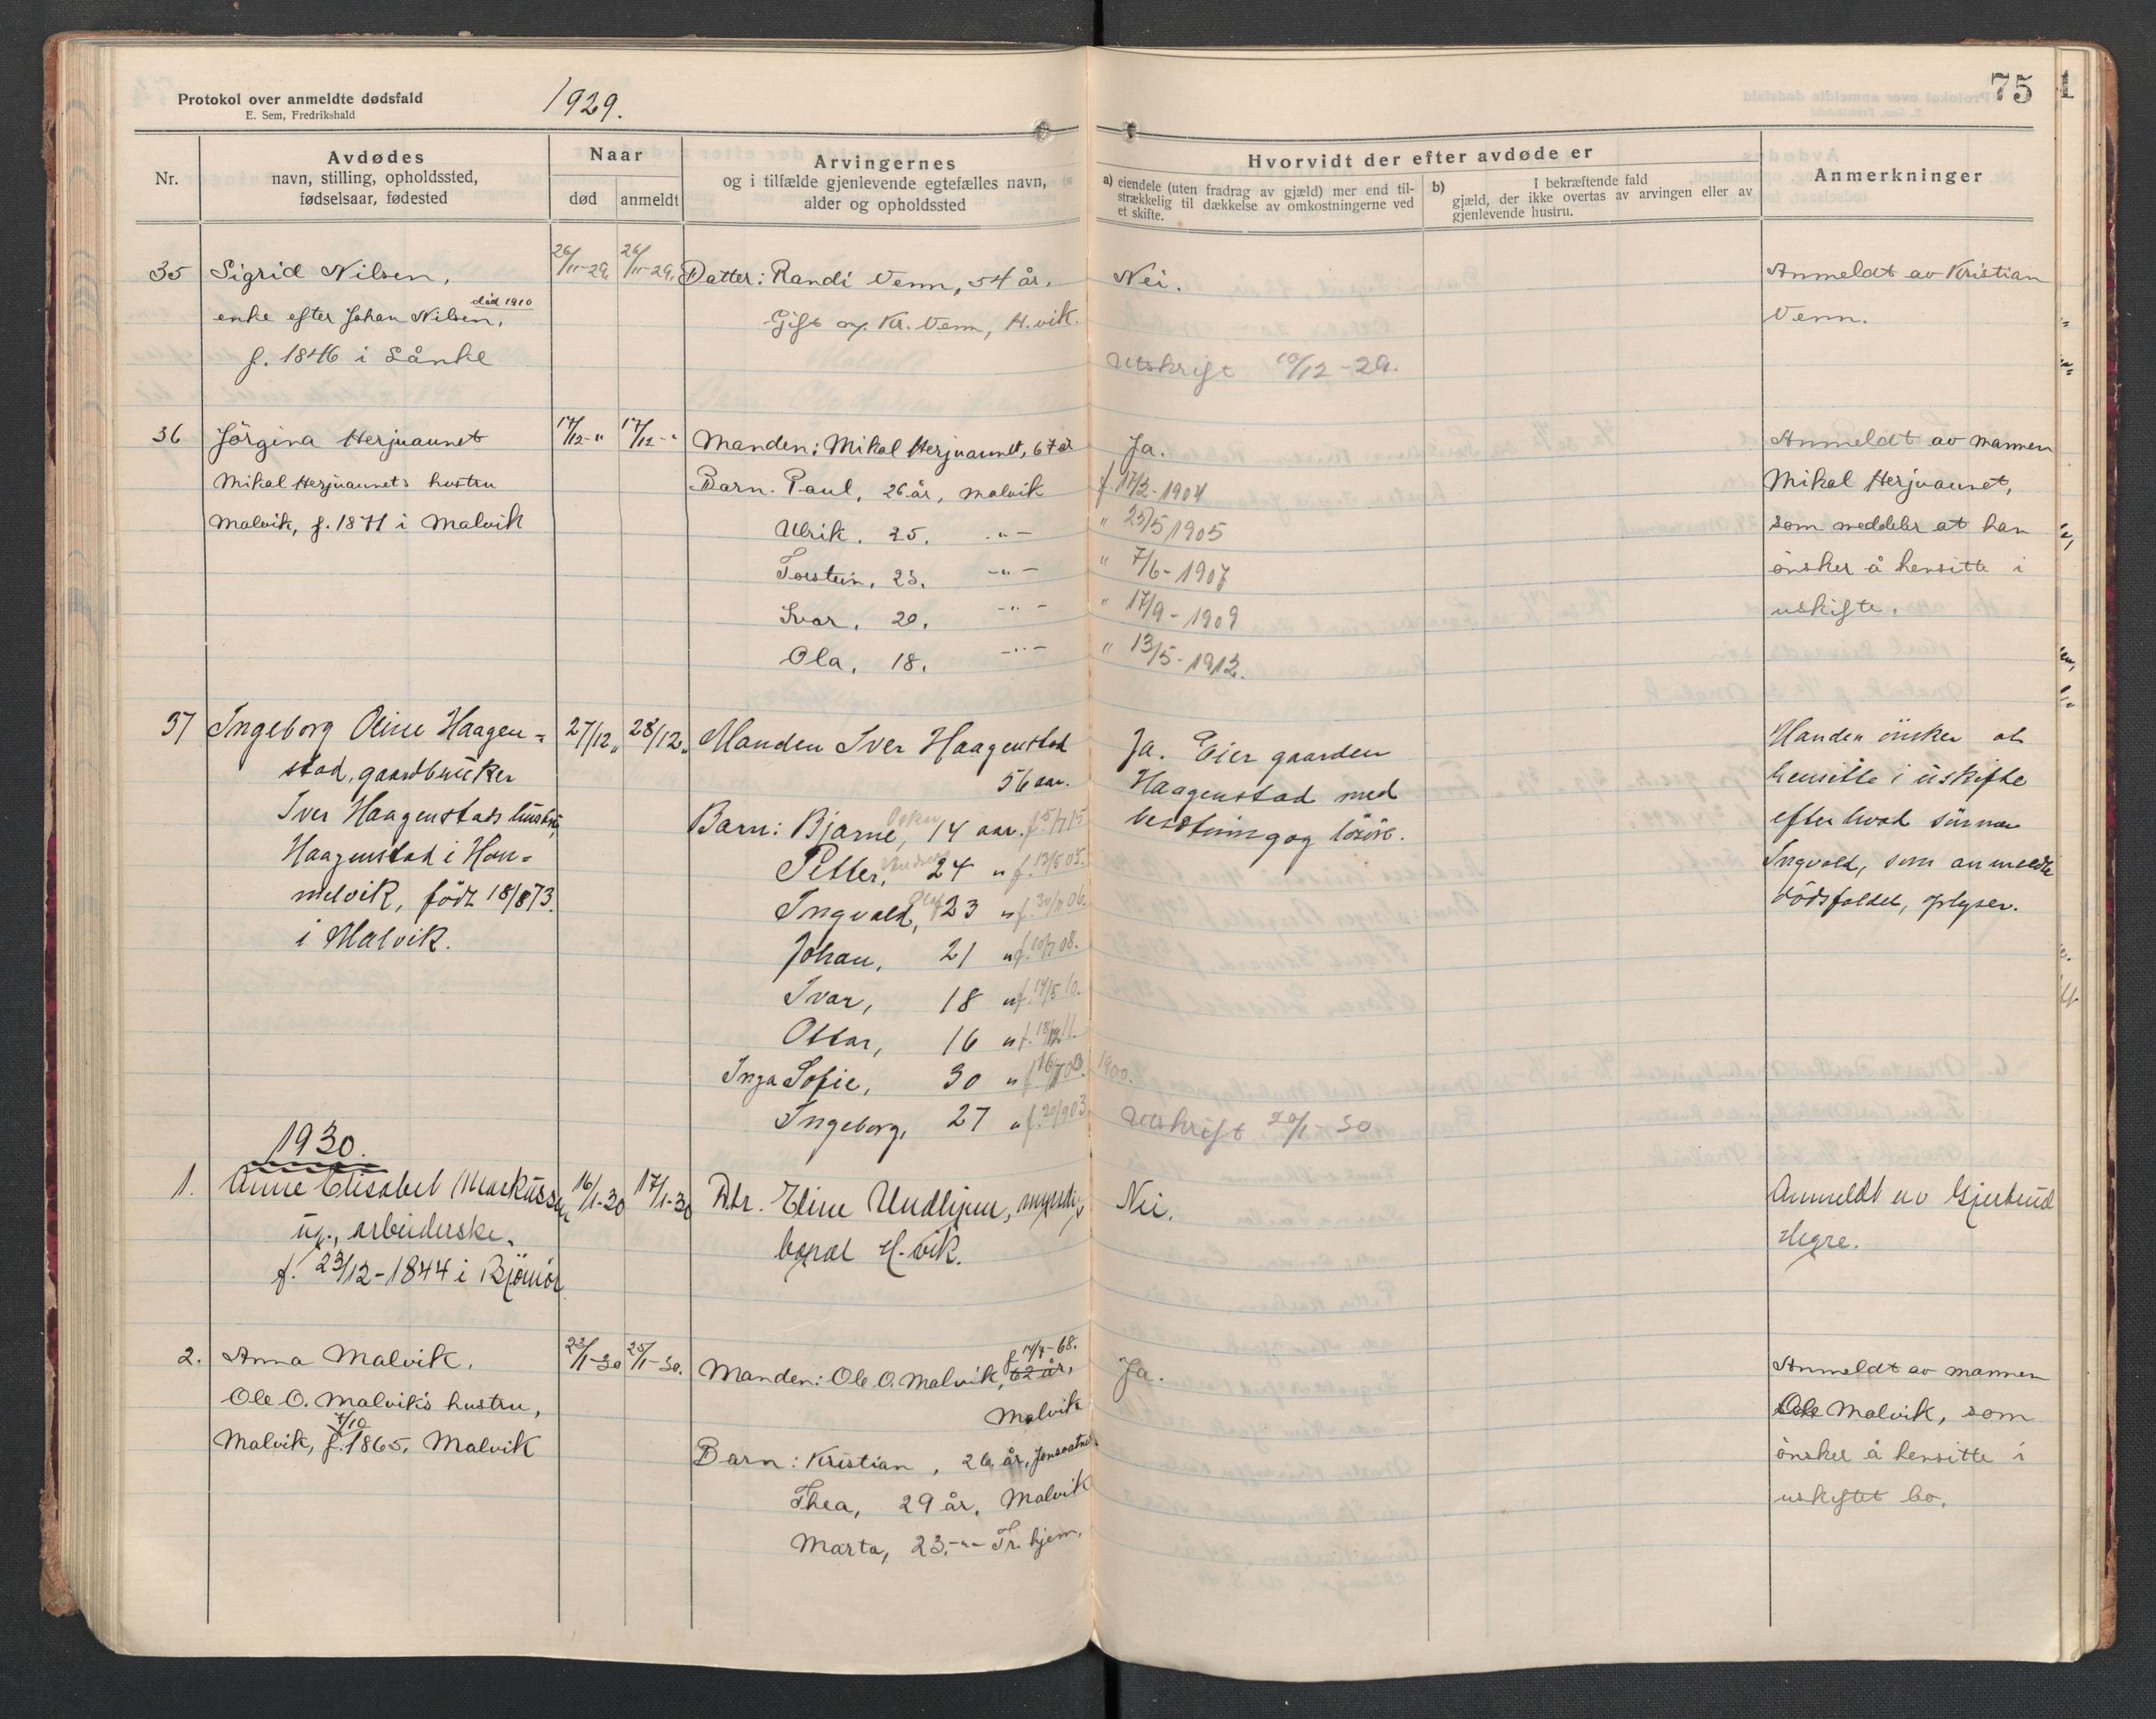 Protokol over anmeldte dødsfald
E. Sem, Fredrikshald
1929.
75
Nr.
Avdødes
navn, stilling, opholdssted,
fødselsaar, fødested
Naar
død
anmeldt
Arvingernes
og i tilfælde gjenlevende egtefælles navn,
alder og opholdssted
Hvorvidt der efter avdøde er
a) eiendele (uten fradrag av gjæld) mer end til-
strækkelig til dækkelse av omkostningerne ved
et skifte.
b) I bekræftende fald
gjæld, der ikke overtas av arvingen eller av
gjenlevende hustru.
Anmerkninger
35 Sigrid Nilsen,
død 1910
enke efter Johan Nilsen,
f. 1846 i Lånke
26/11-29. 26/11-29.
Datter: Randi Venn, 54 år.
Gift m. Kr. Venn, H.vik.
Nei.
Utskrift 10/12-29.
Anmeldt av Kristian
Venn.
36 Jörgina Herjuaunet
Mikal Herjuaunets hustru
Malvik, f. 1871 i Malvik
17/12-" 17/12-"
Manden: Mikal Herjuaunet, 67 år
Barn. Paul, 26 år, Malvik
Ulrik, 25. -"-
Torstein, 23. -"-
Ivar, 20. -"-
Ola, 18. -"-
Ja.
f. 17/2-1904
" 25/5 1905
" 7/6-1907
" 17/9-1909
" 13/5-1912.
Anmeldt av mannen
Mikal Herjuaunet,
som meddeler at han
önsker å hensitte i
uskifte.
37 Ingeborg Oline Haagen-
stad, gaardbruker
Iver Haagenstads hustru,
Haagenstad i Hom-
melvik, födt 18/8 73.
i Malvik.
27/12 " 28/12 "
Manden Iver Haagenstad
56 aar.
Barn: Bjarne, 14 aar.
Petter, 24 " f. 13/5 05.
Ingvald, 23 "
Olaf
Johan, 21 " f. 10/7 08.
Ivar, 18 " f. 14/5 10.
Ottar, 16 " f. 18/12 11.
Inga Sofie, 30 " 1900.
Ingeborg, 27 " f. 20/9 03
Ja. Eier gaarden
Haagenstad med
besetning og lösöre.
Utskrift 20/1-30
Manden önsker at
hensitte i uskifte
efter hvad sönnen
Ingvald, som anmeldte
dödsfaldet, oplyser.
1930.
1. Anne Elisabet Markussen
ug., arbeiderske.
f. 23/12-1844 i Björnör
16/1-30 17/1-30
Dtr. Eline Undlijem, myndig,
bopæl H.vik.
Nei.
Anmeldt av Gjertrud
Hegre.
2. Anna Malvik.
Ole O. Malvik's hustru,
7/10
Malvik, f. 1865, Malvik
23/1-30 25/1-30.
f. 14/7-68.
Manden: Ole O. Malvik, 62 år,
Malvik
Barn: Kristian, 26 år, Jonsvatnet
Thea, 29 år, Malvik
Marta, 23.-"- Tr.hjem.
Ja.
Anmeldt av mannen
Ole Malvik, som
önsker å hensitte i
uskiftet bo.